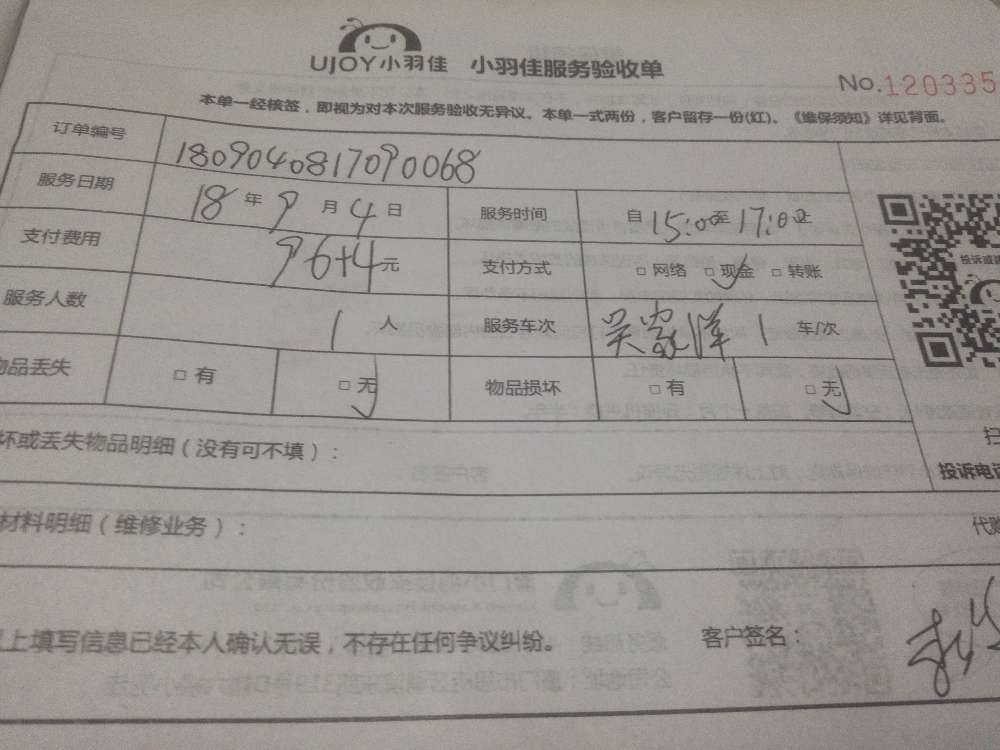 UJOY小羽佳 小羽佳服务验收单
No.120335
本单一经核签，即视为对本次服务验收无异议。本单一式两份，客户留存一份(红)。《维保须知》详见背面。
订单编号 1809040817090068
服务日期 18年9月4日 服务时间 自15:00至17:00止
支付费用 96+4元 支付方式 □网络 □现金 □转账
服务人数 1人 服务车次 1车/次
物品丢失 □有 □无 物品损坏 □有 □无
坏或丢失物品明细（没有可不填）：
投诉电话
材料明细（维修业务）：
上填写信息已经本人确认无误，不存在任何争议纠纷。 客户签名：